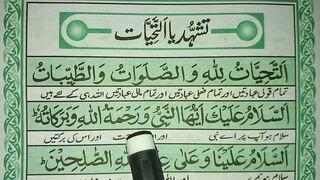 تشہد یا التحیات
اَلتَّحِيَّاتُ لِلّٰهِ وَ الصَّلَوَاتُ وَالطَّيِّبَاتُ
تمام قولی عبادتیں اور تمام فعلی عبادتیں اور تمام مالی عبادتیں اللہ ہی کے لئے ہیں
اَلسَّلَامُ عَلَيْكَ اَيُّهَا النَّبِيُّ وَرَحْمَةُ اللّٰهِ وَبَرَكَاتُهٗ
سلام ہو آپ پر اے نبی اور اس کی برکتیں
اَلسَّلَامُ عَلَيْنَا وَعَلٰى الصّٰلِحِيْنَ
سلام ہو